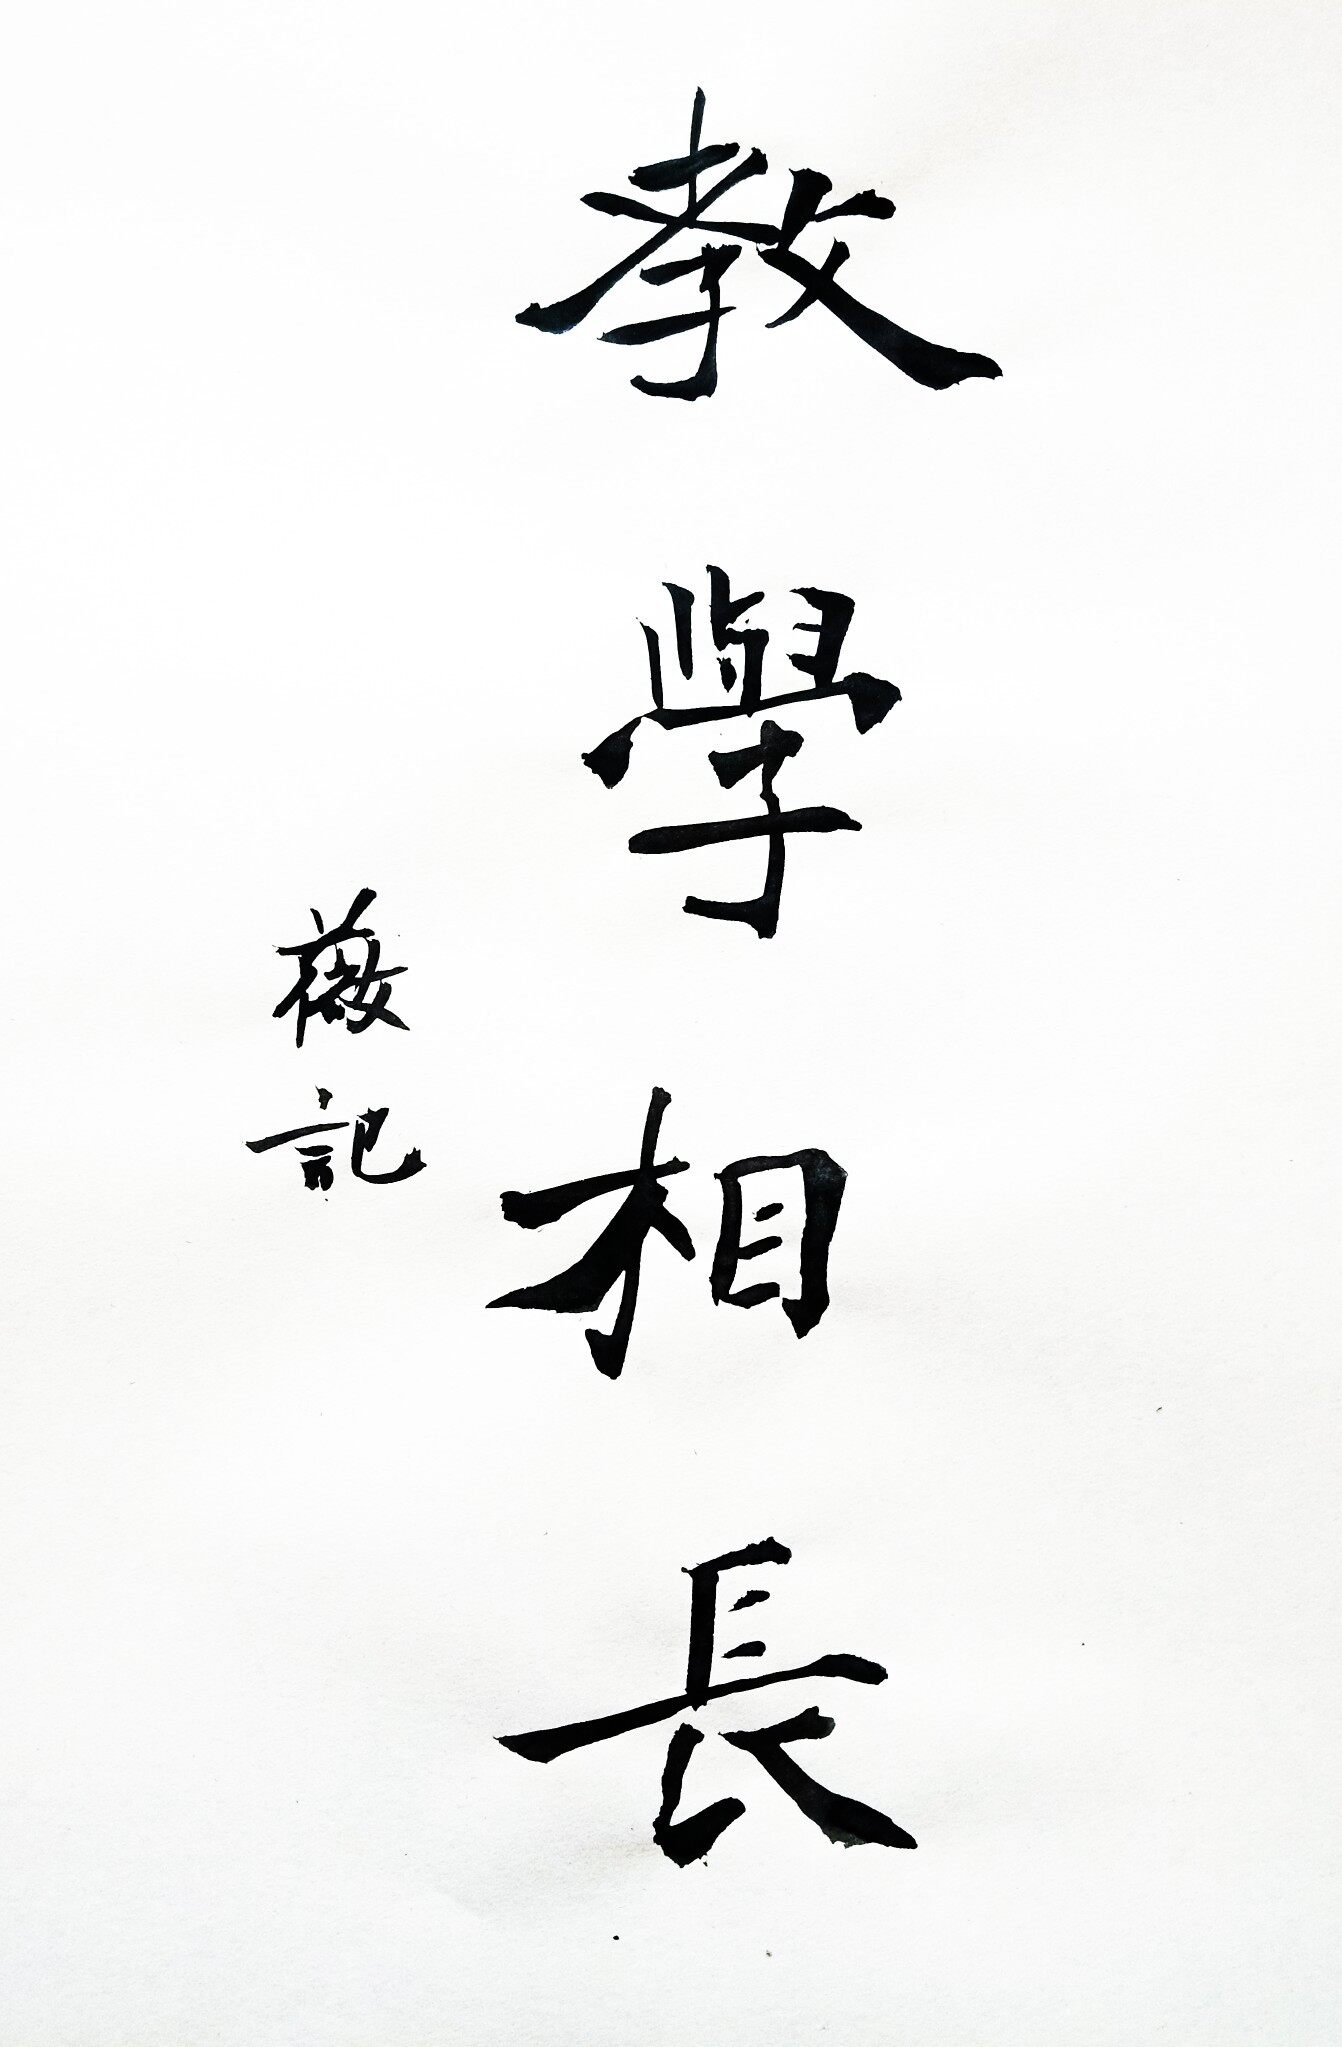 教學相長
薇記